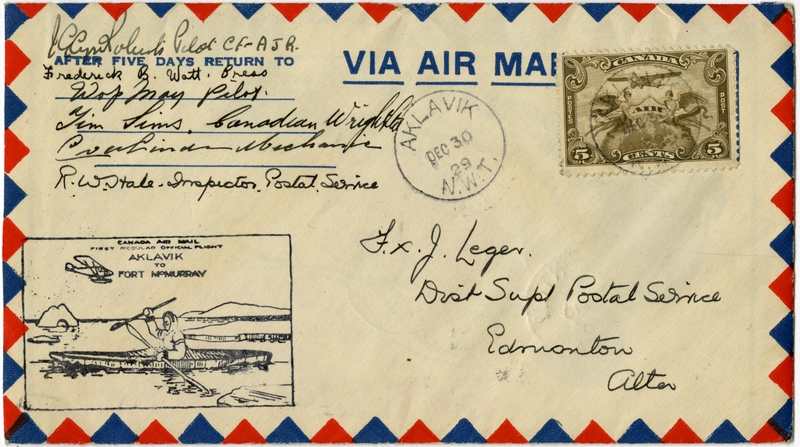 Pilot CF-AJR.
AFTER FIVE DAYS RETURN TO
Frederick B. Watt. Press
Wop May Pilot.
Tim Sims, Canadian Wright
Mechanic
R. W. Hale - Inspector, Postal Service
VIA AIR MAI
AKLAVIK
DEC 30
29
N.W.T.
CANADA
POSTES
POSTAGE
5 CENTS 5
CANADA AIR MAIL
FIRST REGULAR OFFICIAL FLIGHT
AKLAVIK
TO
FORT McMURRAY
F. X. J. Leger.
Dist Supt Postal Service
Edmonton
Alta